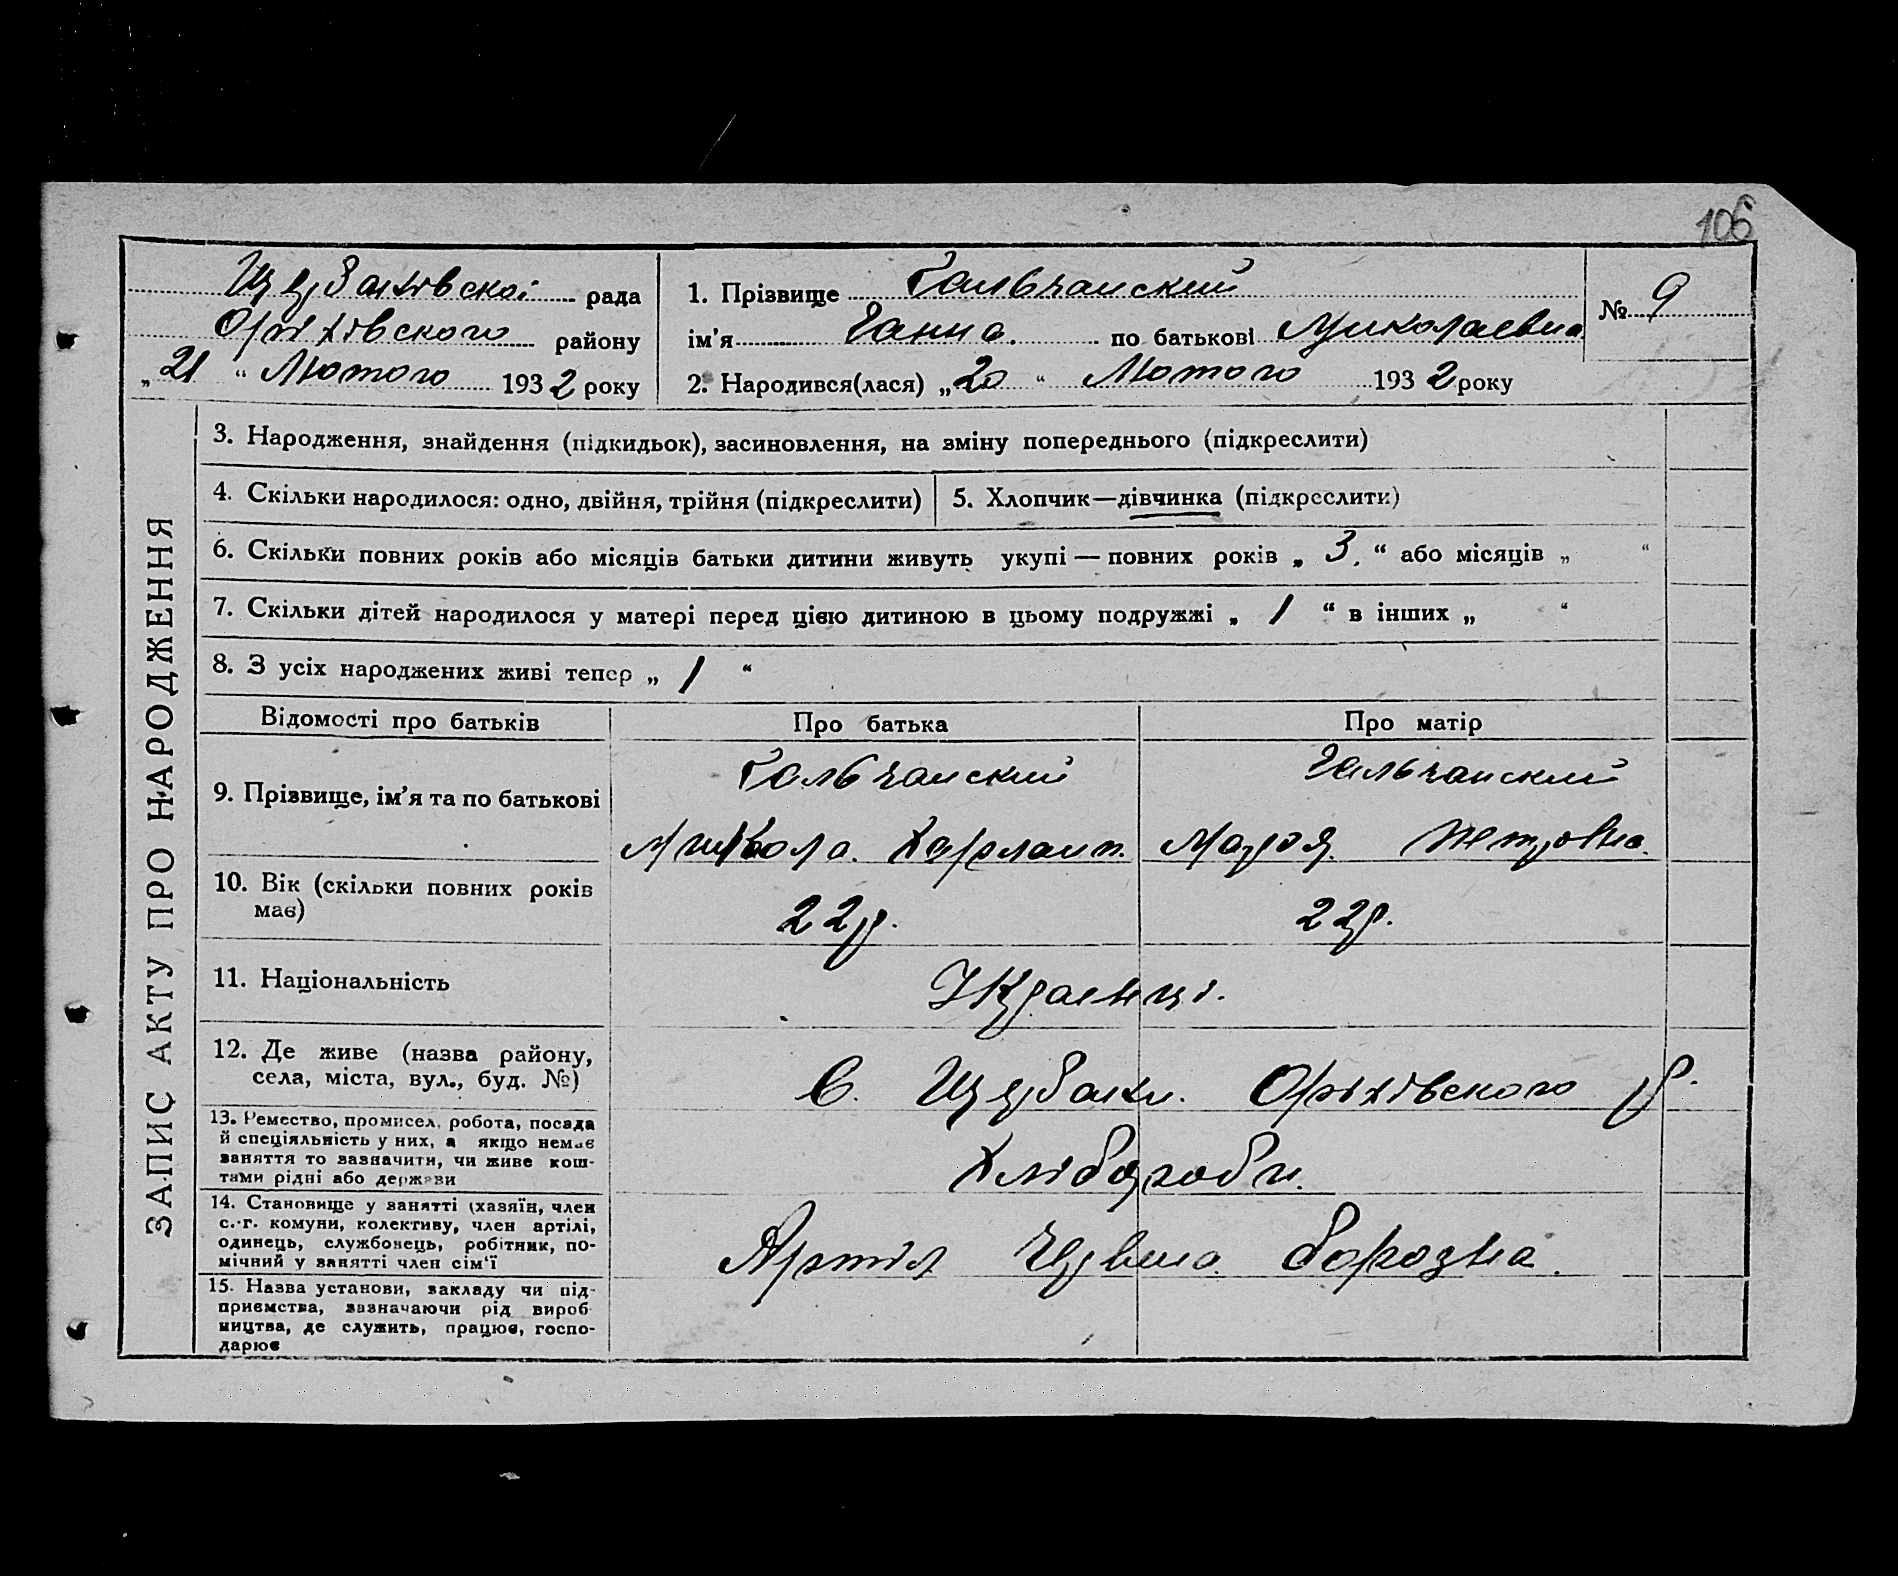 106
Щербаківської рада
Оріхівського району
„ 21 “ Лютого 1932 року
1. Прізвище Гальчанский
ім’я Ганна. по батькові Миколаевна
2. Народився(лася) „ 20 “ Лютого 1932 року
№ 9
ЗАПИС АКТУ ПРО НАРОДЖЕННЯ
3. Народження, знайдення (підкидьок), засиновлення, на зміну попереднього (підкреслити)
4. Скільки народилося: одно, двійня, трійня (підкреслити)
5. Хлопчик—дівчинка (підкреслити)
6. Скільки повних років або місяців батьки дитини живуть укупі — повних років „ 3. “ або місяців „ “
7. Скільки дітей народилося у матері перед цією дитиною в цьому подружжі „ 1 “ в інших „ “
8. З усіх народжених живі тепер „ 1 “
Відомості про батьків
Про батька
Про матір
9. Прізвище, ім’я та по батькові
Гальчанский
Микола. Харламп.
Гальчанский
Мария. Петровна.
10. Вік (скільки повних років
має)
22р.
22р.
11. Національність
Украенці.
12. Де живе (назва району,
села, міста, вул., буд. №)
С. Щербаки. Оріхівського р.
13. Ремество, промисел, робота, посада
й спеціяльність у них, а якщо немає
заняття то зазначити, чи живе кош-
тами рідні або держави
Хлібороби.
14. Становище у занятті (хазяїн, член
с.-г. комуни, колективу, член артілі,
одинець, службовець, робітник, по-
мічний у занятті член сім‘ї
Артіл Червона борозна.
15. Назва установи, закладу чи під-
приємства, зазначаючи рід вироб
ництва, де служить, працює, госпо-
дарює